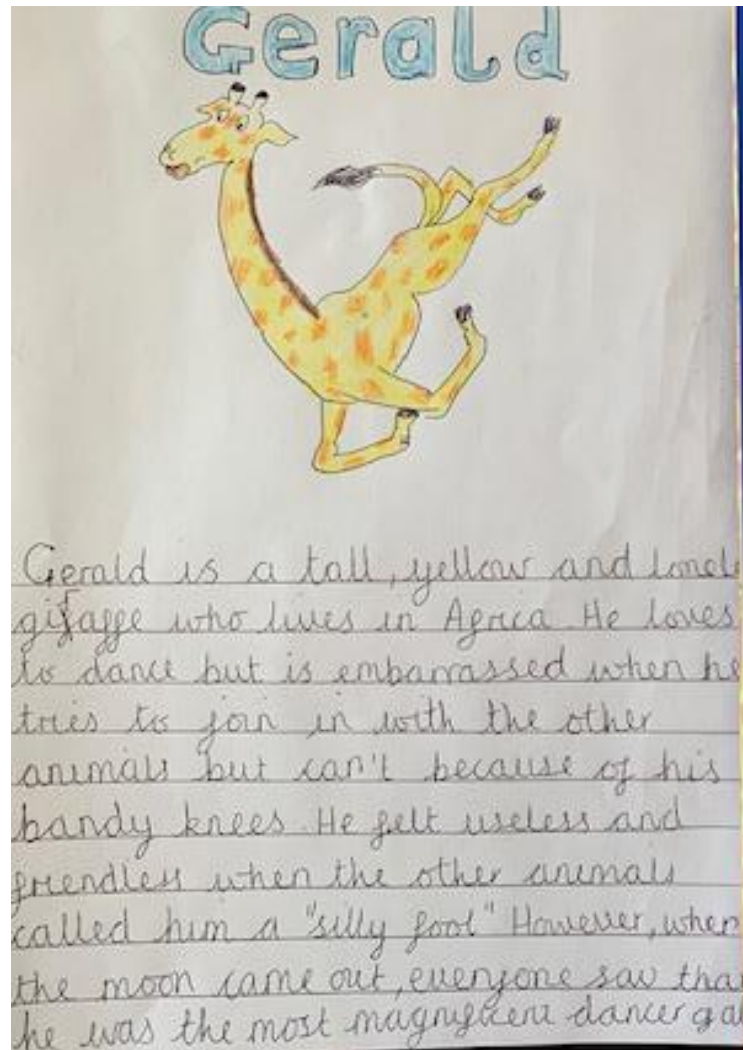 Gerald
Gerald is a tall, yellow and lonel
giraffe who lives in Africa. He loves
to dance but is embarrassed when he
tries to join in with the other
animals but can't because of his
bandy knees. He felt useless and
friendless when the other animals
called him a "silly fool" However, when
the moon came out, everyone saw tha
he was the most magnificent dancer